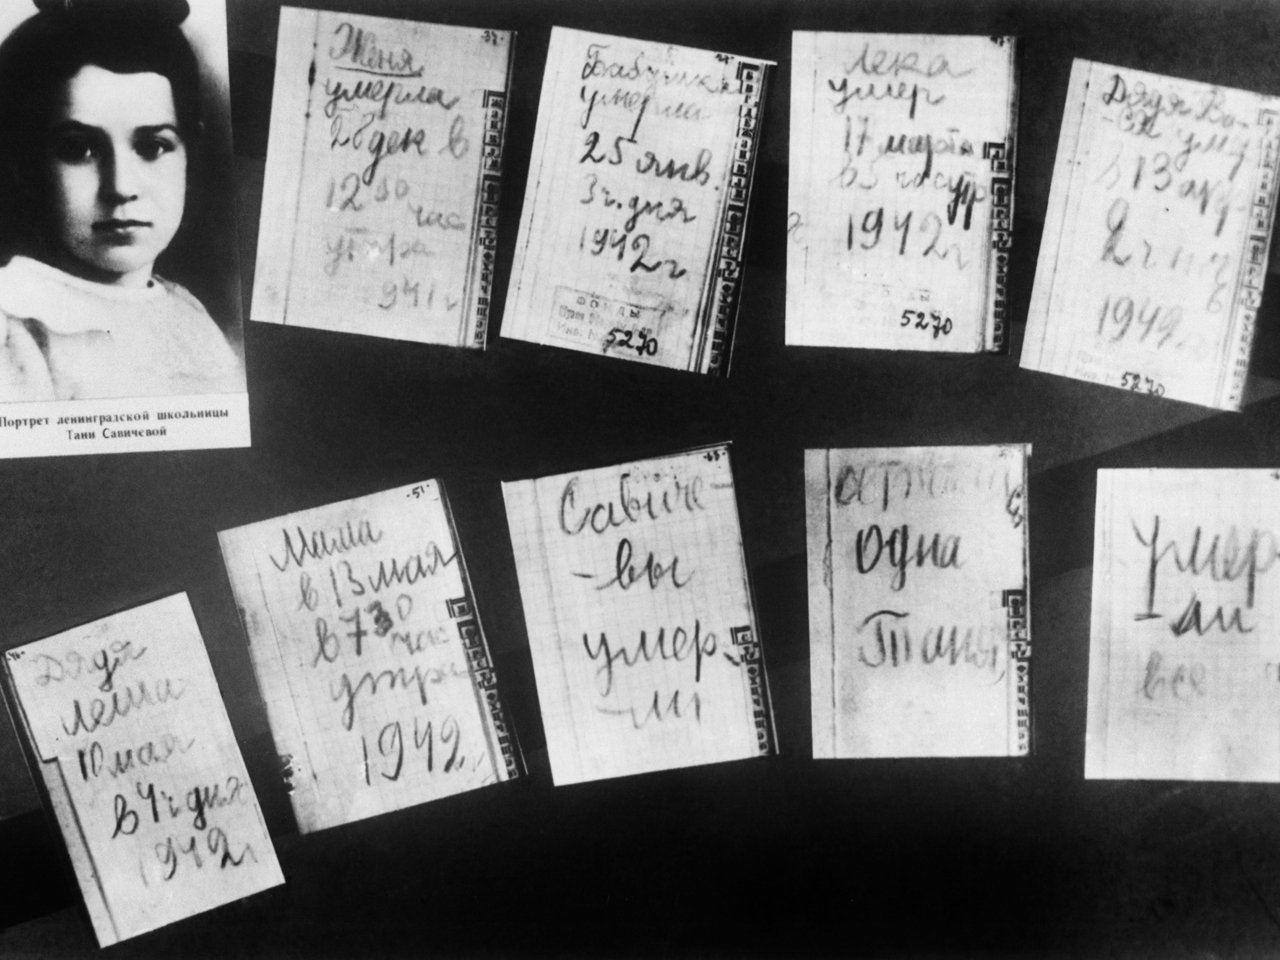 Портрет ленинградской школьницы
Тани Савичевой
-37-
Женя
умерла
28 дек в
12 30
час
утра
941 г
Бабушка
умерла
25 янв.
3 ч. дня
1942 г
ФОНДЫ
5270
Лека
умер
17 марта
в 5 час утр
1942 г
5270
Дядя Ва-
-ся ум
в 13 апр
2 ч ноч
1942
5270
Дядя
Леша
10 мая
в 4 ч дня
1942 г
-51-
Мама
в 13 мая
в 7 30
час
утра
1942
Савиче-
-вы
умер-
-ли
одна
Таня
Умер
-ли
все